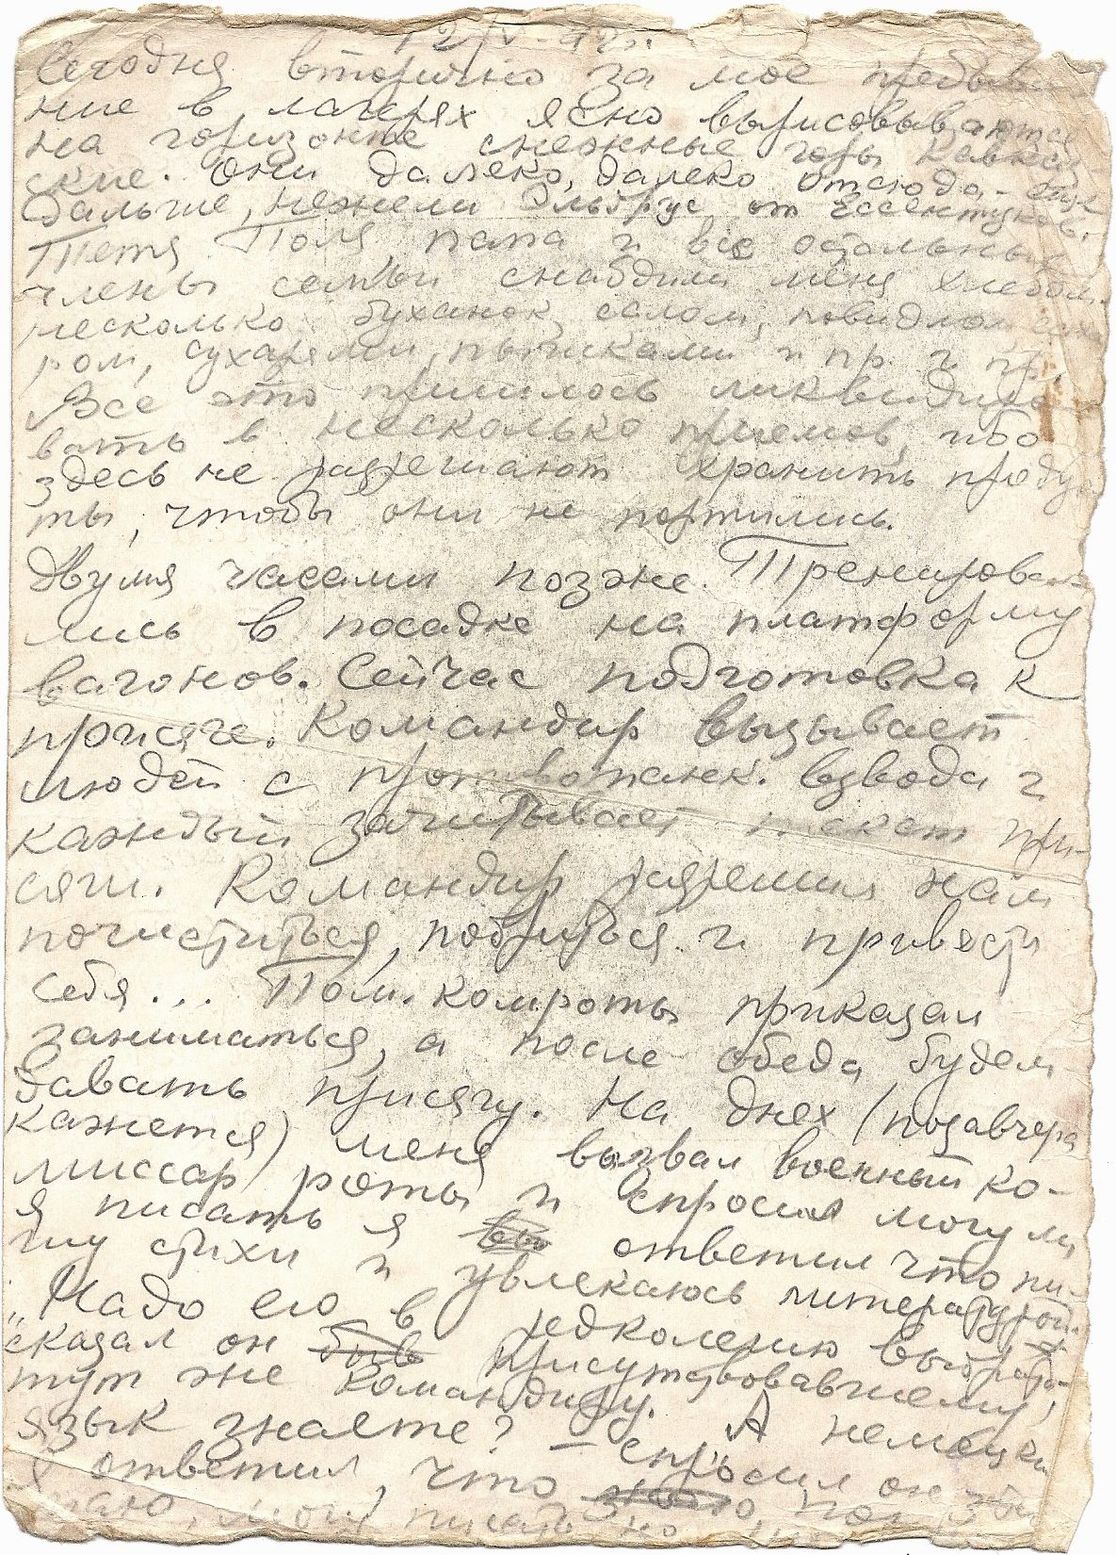 12/V-42г.
Сегодня вторично за мое пребыва-
ние в лагерях ясно вырисовываются
на горизонте снежные горы Кавказ
ские. Они далеко, далеко отсюда - еще
дальше, нежели Эльбрус от Ессентуков.
Тетя Поля папа и все остальные
члены семьи снабдили меня хлебом
несколько буханок, салом, повидлом саха
ром, сухарями, пышками и пр. и пр.
Все это пришлось ликвидиро-
вать в несколько приемов, ибо
здесь не разрешают хранить продук
ты, чтобы они не портились.
Двумя часами позже. Тренирова-
лись в посадке на платформу
вагонов. Сейчас подготовка к
присяге. Командир вызывает
людей с противотанк. взвода и
каждый зачитывает текст при-
сяги. Командир разрешил нам
почиститься, побриться и привести
себя... Пом. комроты приказал
заниматься, а после обеда будем
давать присягу. На днях (позавчера
кажется) меня вызвал военный ко-
миссар роты и спросил могу ли
я писать я ответил что пи-
шу стихи и увлекаюсь литературой.
"Надо его в редколегию выбрать
сказал он присутствовавшему
тут же командиру. А немецкий
язык знаете? - спросил он
Я ответил, что
знаю, могу писать но